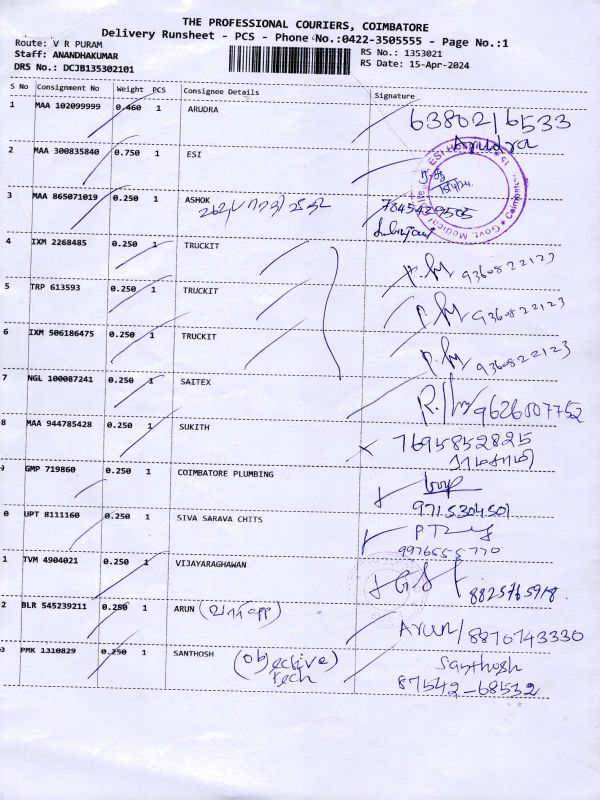 THE PROFESSIONAL COURIERS, COIMBATORE
Delivery Runsheet - PCS - Phone No.:0422-3505555 - Page No.:1
Route: V R PURAM
Staff: ANANDHAKUMAR
DRS No.: DCJB135302101
RS No.: 1353021
RS Date: 15-Apr-2024
S No Consignment No Weight PCS Consignee Details Signature
1 MAA 102099999 0.460 1 ARUDRA 6380216533
Arudra
2 MAA 300835840 0.750 1 ESI
3 MAA 865071019 0.250 1 ASHOK 7845429505
4 IXM 2268485 0.250 1 TRUCKIT 9360822123
5 TRP 613593 0.250 1 TRUCKIT 9360822123
6 IXM 506186475 0.250 1 TRUCKIT 9360822123
7 NGL 100087241 0.250 1 SAITEX 9626007752
8 MAA 944785428 0.250 1 SUKITH 7695852825
9 GMP 719860 0.250 1 COIMBATORE PLUMBING
9715304501
0 UPT 8111160 0.250 1 SIVA SARAVA CHITS
9976555770
1 TVM 4904021 0.250 1 VIJAYARAGHAWAN 8825765918
2 BLR 545239211 0.250 1 ARUN Arun/8870743330
3 PMK 1310829 0.250 1 SANTHOSH (objective) Santhosh
Tech 87542-68532